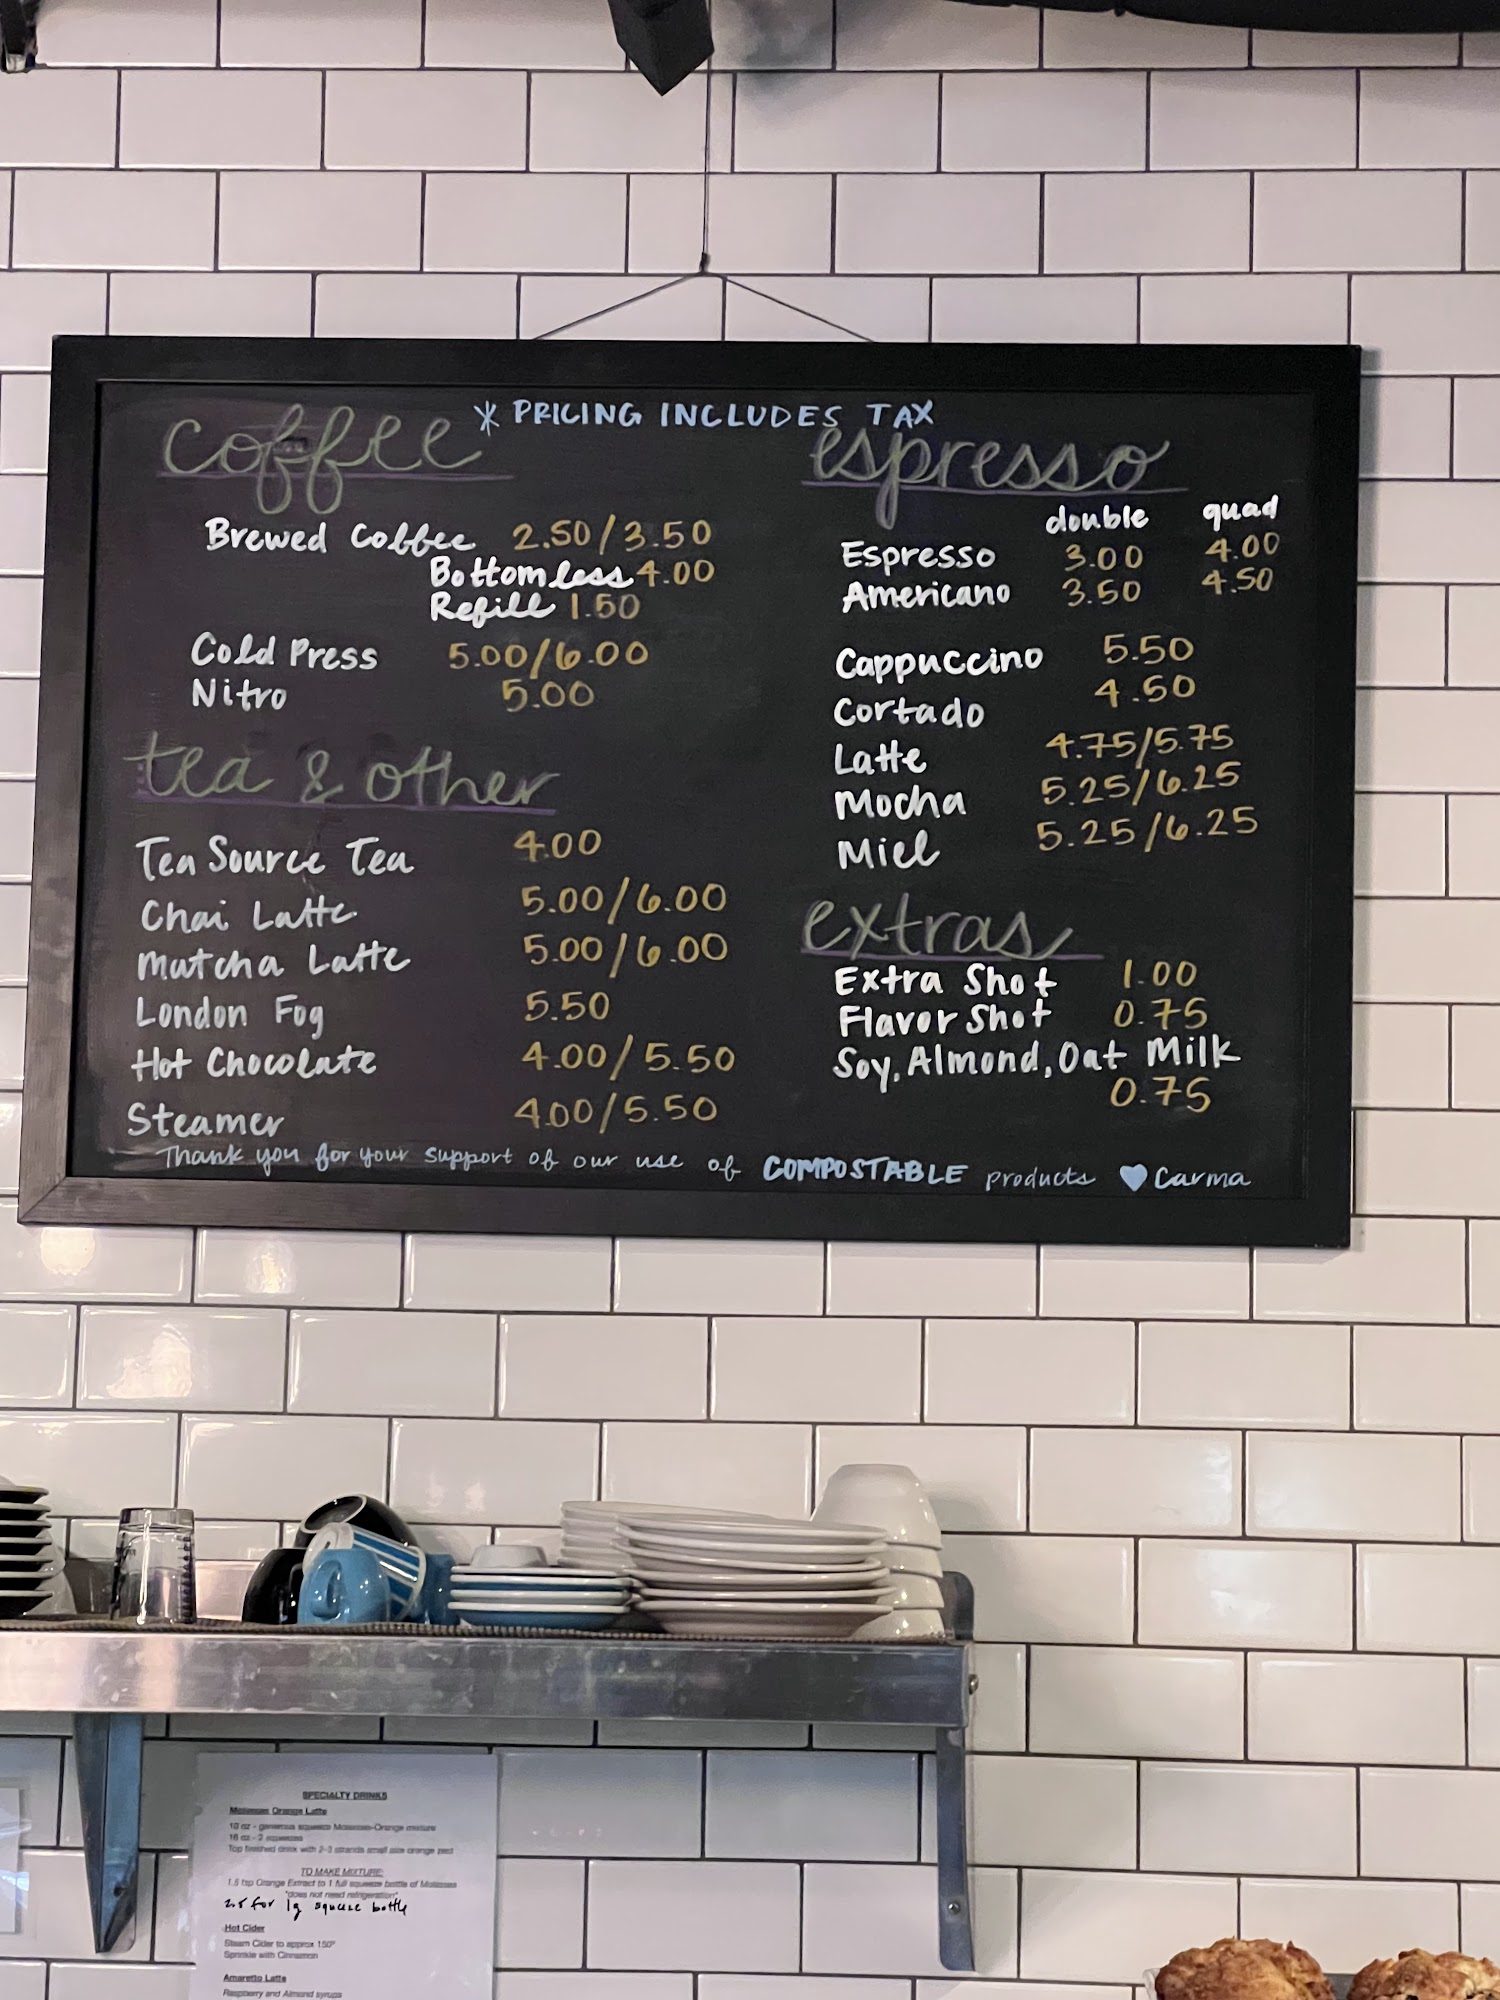 * PRICING INCLUDES TAX
coffee
Brewed Coffee 2.50/3.50
Bottomless 4.00
Refill 1.50
Cold Press 5.00/6.00
Nitro 5.00
tea & other
Tea Source Tea 4.00
Chai Latte 5.00/6.00
Matcha Latte 5.00/6.00
London Fog 5.50
Hot Chocolate 4.00/5.50
Steamer 4.00/5.50
espresso
double quad
Espresso 3.00 4.00
Americano 3.50 4.50
Cappuccino 5.50
Cortado 4.50
Latte 4.75/5.75
Mocha 5.25/6.25
Miel 5.25/6.25
extras
Extra Shot 1.00
Flavor Shot 0.75
Soy, Almond, Oat Milk
0.75
Thank you for your support of our use of COMPOSTABLE products ♥ Carma
SPECIALTY DRINKS
Molasses Orange Latte
10 oz - generous squeeze Molasses-Orange mixture
16 oz - 2 squeezes
Top finished drink with 2-3 strands small size orange peel
TO MAKE MIXTURE:
1.5 tsp Orange Extract to 1 full squeeze bottle of Molasses
*does not need refrigeration*
for lg squeeze bottle
Hot Cider
Steam Cider to approx 150°
Sprinkle with Cinnamon
Amaretto Latte
Raspberry and Almond syrups